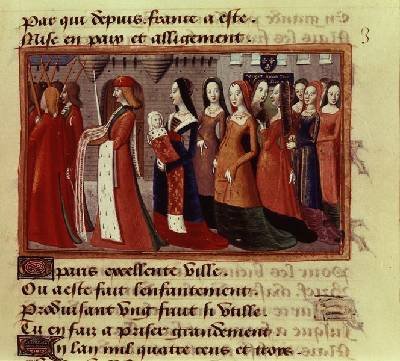 Par qui depuis france a este
Mise en paix et alligement
3
O paris excellente ville
Ou a este fait lenfantement
Produisant vng fruit si vtille
Tu en fais a priser grandement
En lan mil quatre cens et trois